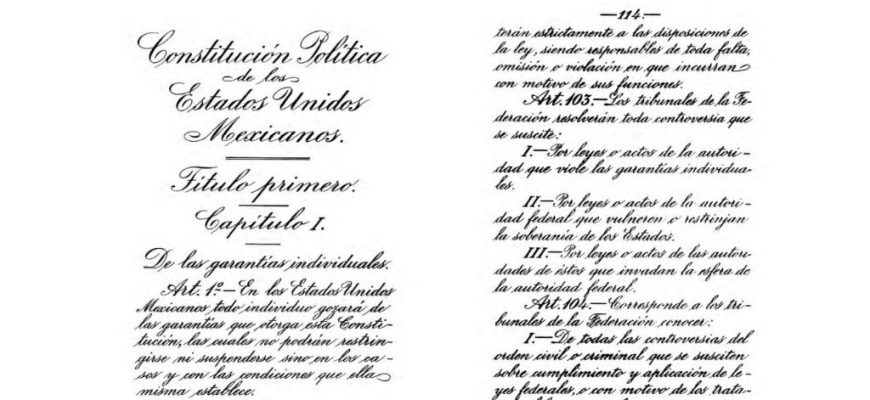 Constitución Política
de los
Estados Unidos
Mexicanos.
Título primero.
Capítulo I.
De las garantías individuales.
Art. 1º—En los Estados Unidos
Mexicanos todo individuo gozará de
las garantías que otorga esta Consti-
tución, las cuales no podrán restrin-
girse ni suspenderse sino en los ca-
sos y con las condiciones que ella
misma establece.
—114.—
terán estrictamente a las disposiciones de
la ley, siendo responsables de toda falta,
omisión o violación en que incurran
con motivo de sus funciones.
Art. 103.—Los tribunales de la Fe-
deración resolverán toda controversia que
se suscite:
I.—Por leyes o actos de la autori-
dad que viole las garantías individua-
les.
II.—Por leyes o actos de la autori-
dad federal que vulneren o restrinjan
la soberanía de los Estados.
III.—Por leyes o actos de las autori-
dades de éstos que invadan la esfera de
la autoridad federal.
Art. 104.—Corresponde a los tri-
bunales de la Federación conocer:
I.—De todas las controversias del
orden civil o criminal que se susciten
sobre cumplimiento y aplicación de le-
yes federales, o con motivo de los trata-